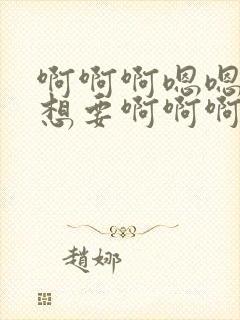 啊啊啊嗯嗯
想要啊啊啊
趙娜